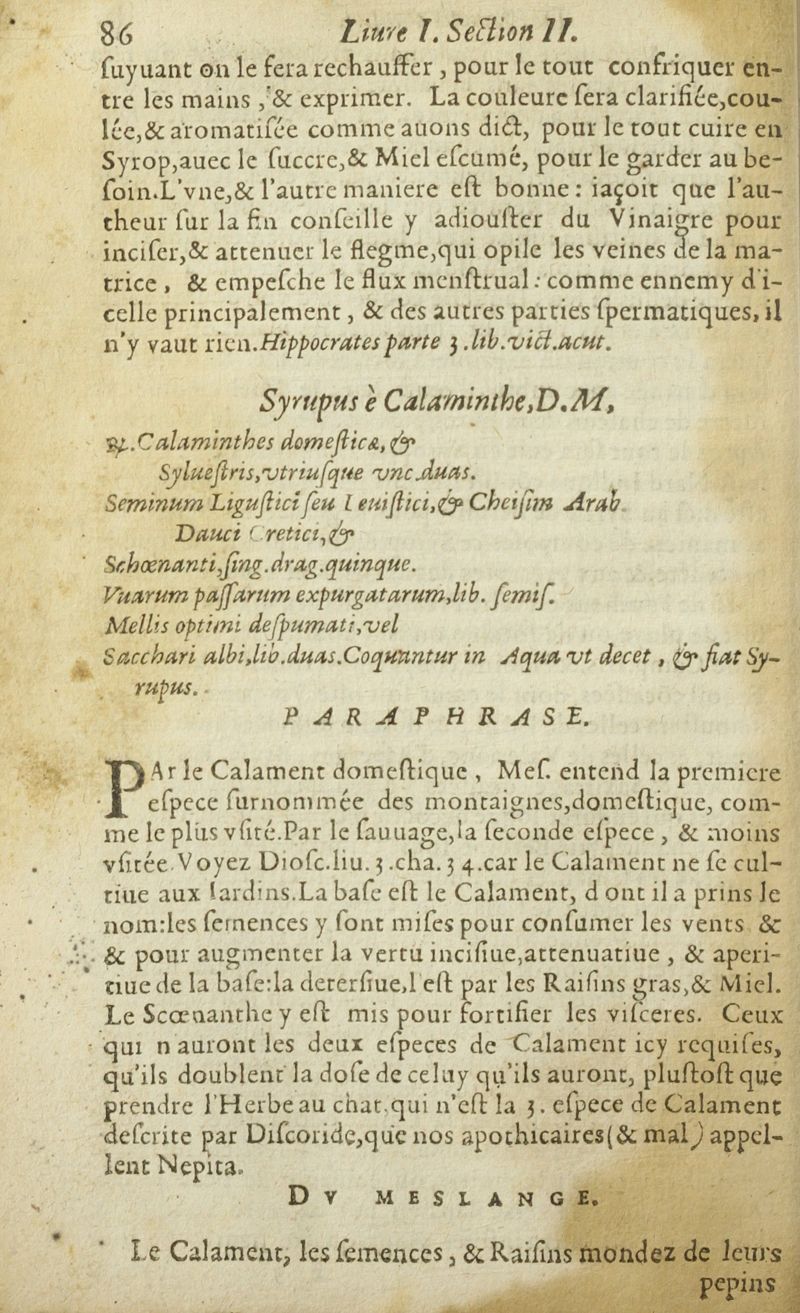 86 Liure I. Section II.
suyuant on le fera rechauffer, pour le tout confriquer en-
tre les mains, & exprimer. La couleure sera clarifiée,cou-
lée,& aromatisée comme auons dict, pour le tout cuire en
Syrop,auec le succre,& Miel escumé, pour le garder au be-
soin.L'vne,& l'autre maniere est bonne: iaçoit que l'au-
theur sur la fin conseille y adiouster du Vinaigre pour
inciser,& attenuer le flegme,qui opile les veines de la ma-
trice, & empesche le flux menstrual: comme ennemy d'i-
celle principalement, & des autres parties spermatiques, il
n'y vaut rien. Hippocrates parte 3.lib.vict.acut.
Syrupus è Calaminthe,D.M,
℞.Calaminthes domesticæ, &
Syluestris,vtriusque vnc.duas.
Seminum Ligustici seu Leuistici,& Cheisim Arab.
Dauci Cretici,&
Schœnanti,sing.drag.quinque.
Vuarum passarum expurgatarum,lib. semis.
Mellis optimi despumati,vel
Sacchari albi,lib.duas.Coquantur in Aqua vt decet, & fiat Sy-
rupus.
PARAPHRASE.
PAr le Calament domestique, Mes. entend la premiere
espece surnommée des montaignes,domestique, com-
me le plus vsité.Par le sauuage,la seconde espece, & moins
vsitée.Voyez Diosc.liu.3.cha.34.car le Calament ne se cul-
tiue aux Iardins.La base est le Calament, dont il a prins le
nom:les semences y sont mises pour consumer les vents &
& pour augmenter la vertu incisiue,attenuatiue, & aperi-
tiue de la base:la detersiue,l'est par les Raisins gras,& Miel.
Le Scœnanthe y est mis pour fortifier les visceres. Ceux
qui n'auront les deux especes de Calament icy requises,
qu'ils doublent la dose de celuy qu'ils auront, plustost que
prendre l'Herbe au chat,qui n'est la 3. espece de Calament
descrite par Discoride,que nos apothicaires(& mal) appel-
lent Nepita.
DV MESLANGE.
Le Calament, les semences, & Raisins mondez de leurs
pepins